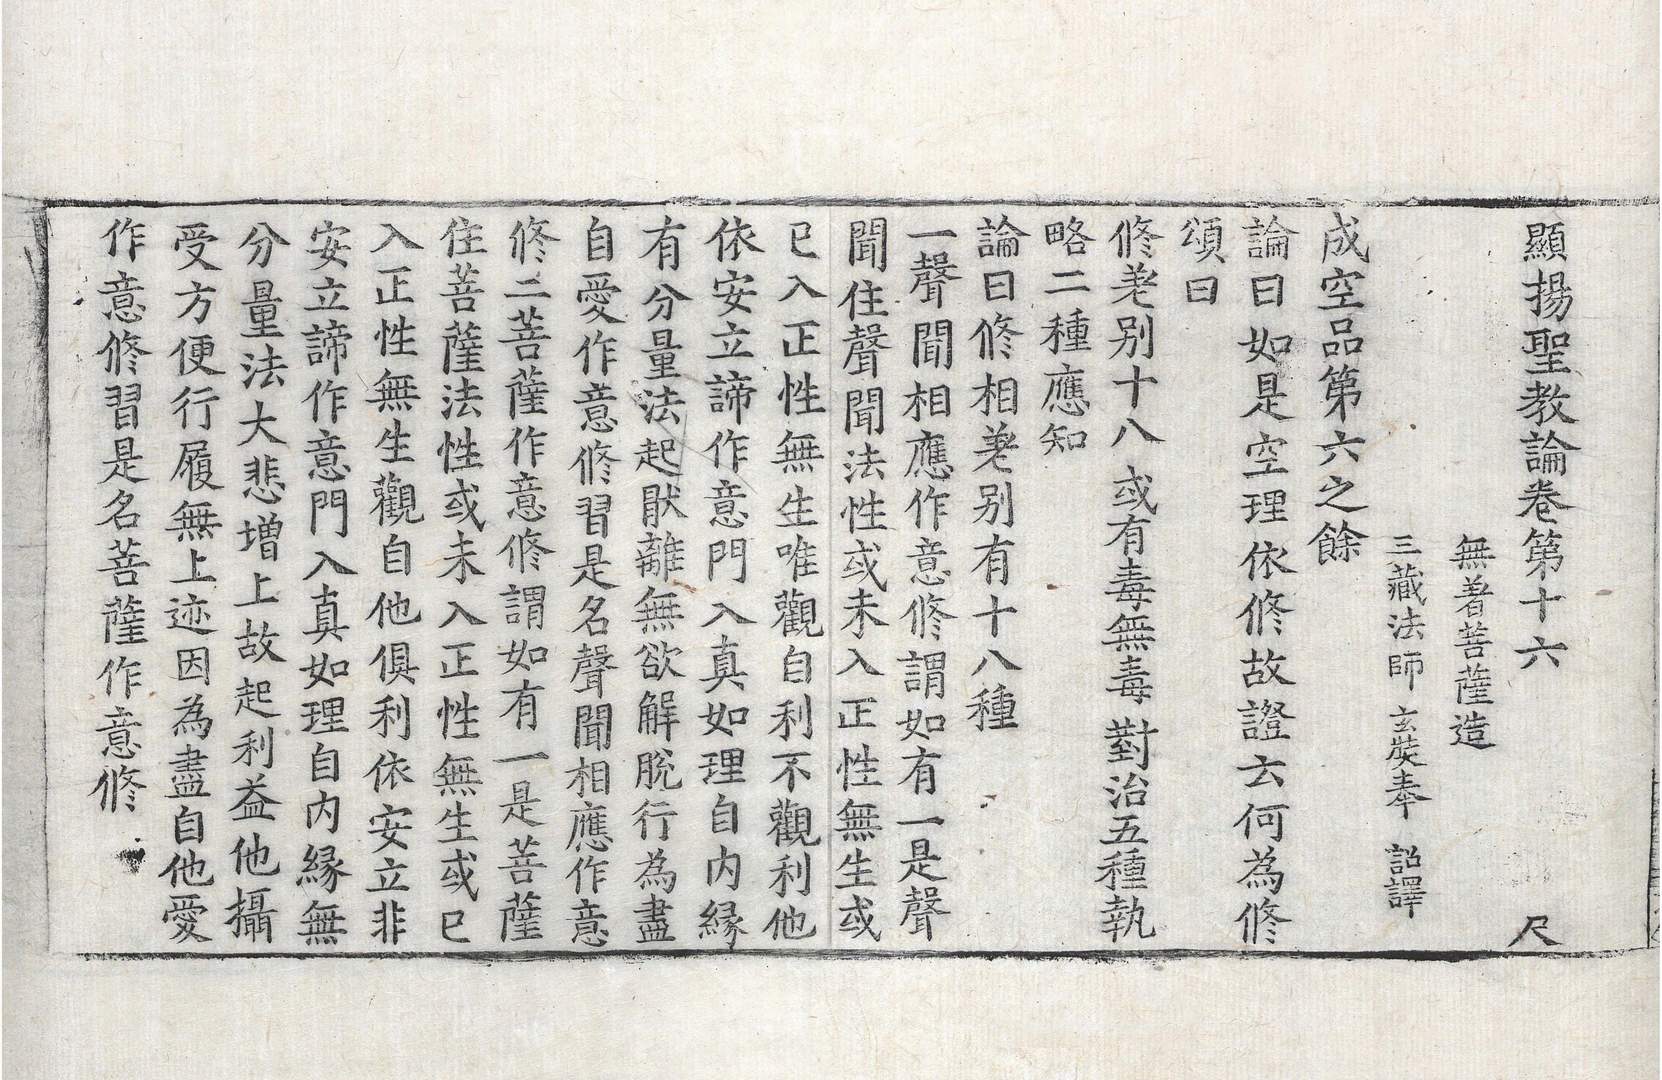 顯揚聖教論卷第十六 尺
無著菩薩造
三藏法師玄奘奉 詔譯
成空品第六之餘
論曰如是空理依修故證云何為修
頌曰
修差別十八 或有毒無毒 對治五種執
略二種應知
論曰修相差別有十八種
一聲聞相應作意修謂如有一是聲
聞住聲聞法性或未入正性無生或
已入正性無生唯觀自利不觀利他
依安立諦作意門入真如理自內緣
有分量法起猒離無欲解脫行為盡
自愛作意修習是名聲聞相應作意
修二菩薩作意修謂如有一是菩薩
住菩薩法性或未入正性無生或已
入正性無生觀自他俱利依安立非
安立諦作意門入真如理自內緣無
分量法大悲增上故起利益他攝
受方便行履無上迹因為盡自他愛
作意修習是名菩薩作意修